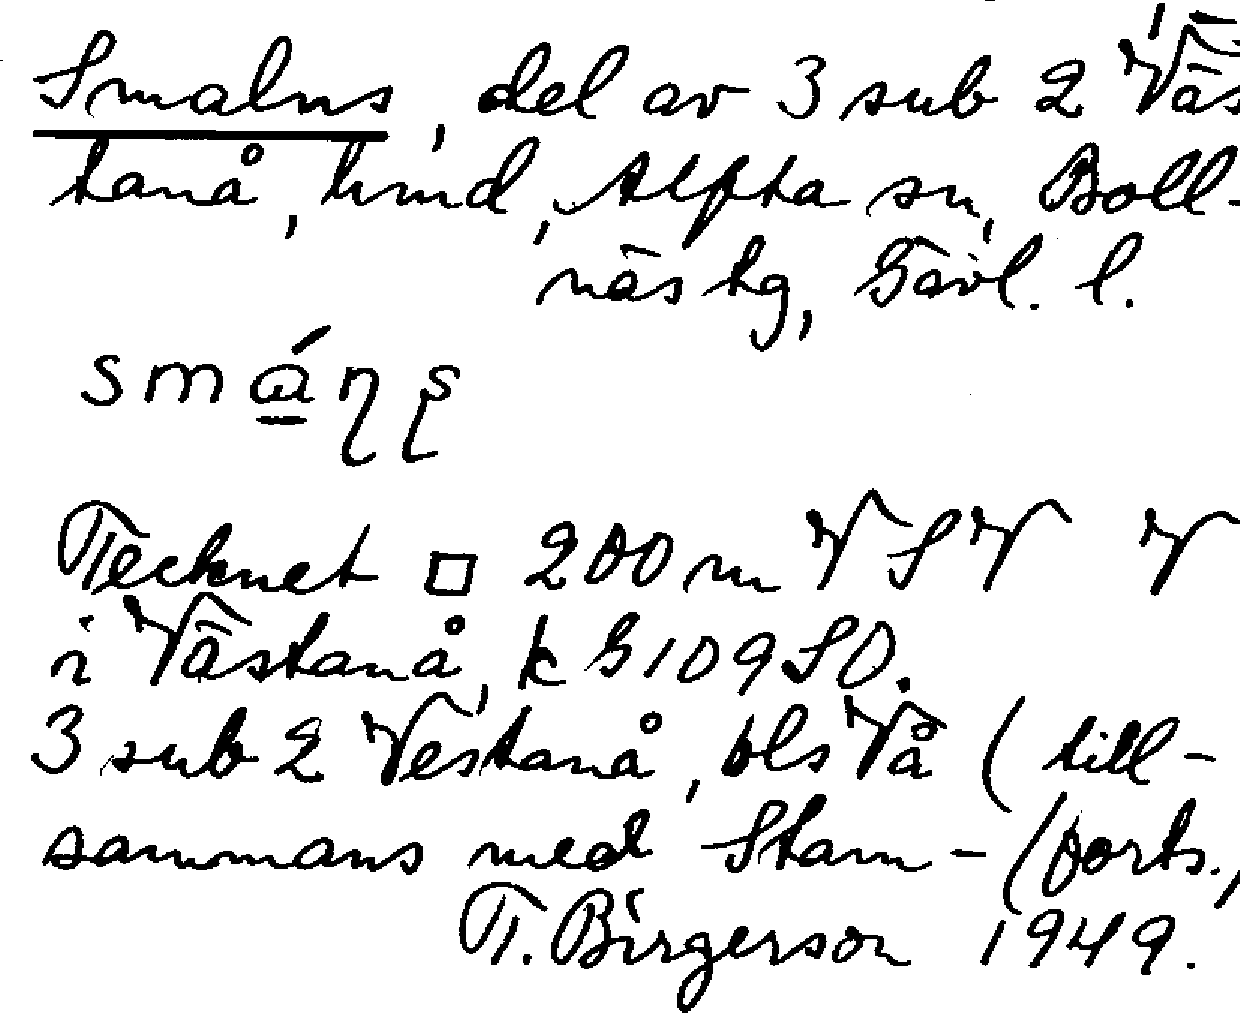 Smalns, del av 3 sub 2 Väs
tanå, hmd, Alfta sn, Boll-
näs tg, Gävl. l.
smá̱ṇṣ
Tecknet □ 200 m VSV V
i Västanå, k G 109 SO.
3 sub 2 Vestanå, bls Vå (till-
sammans med Stam- (forts.)
T. Birgerson 1949.